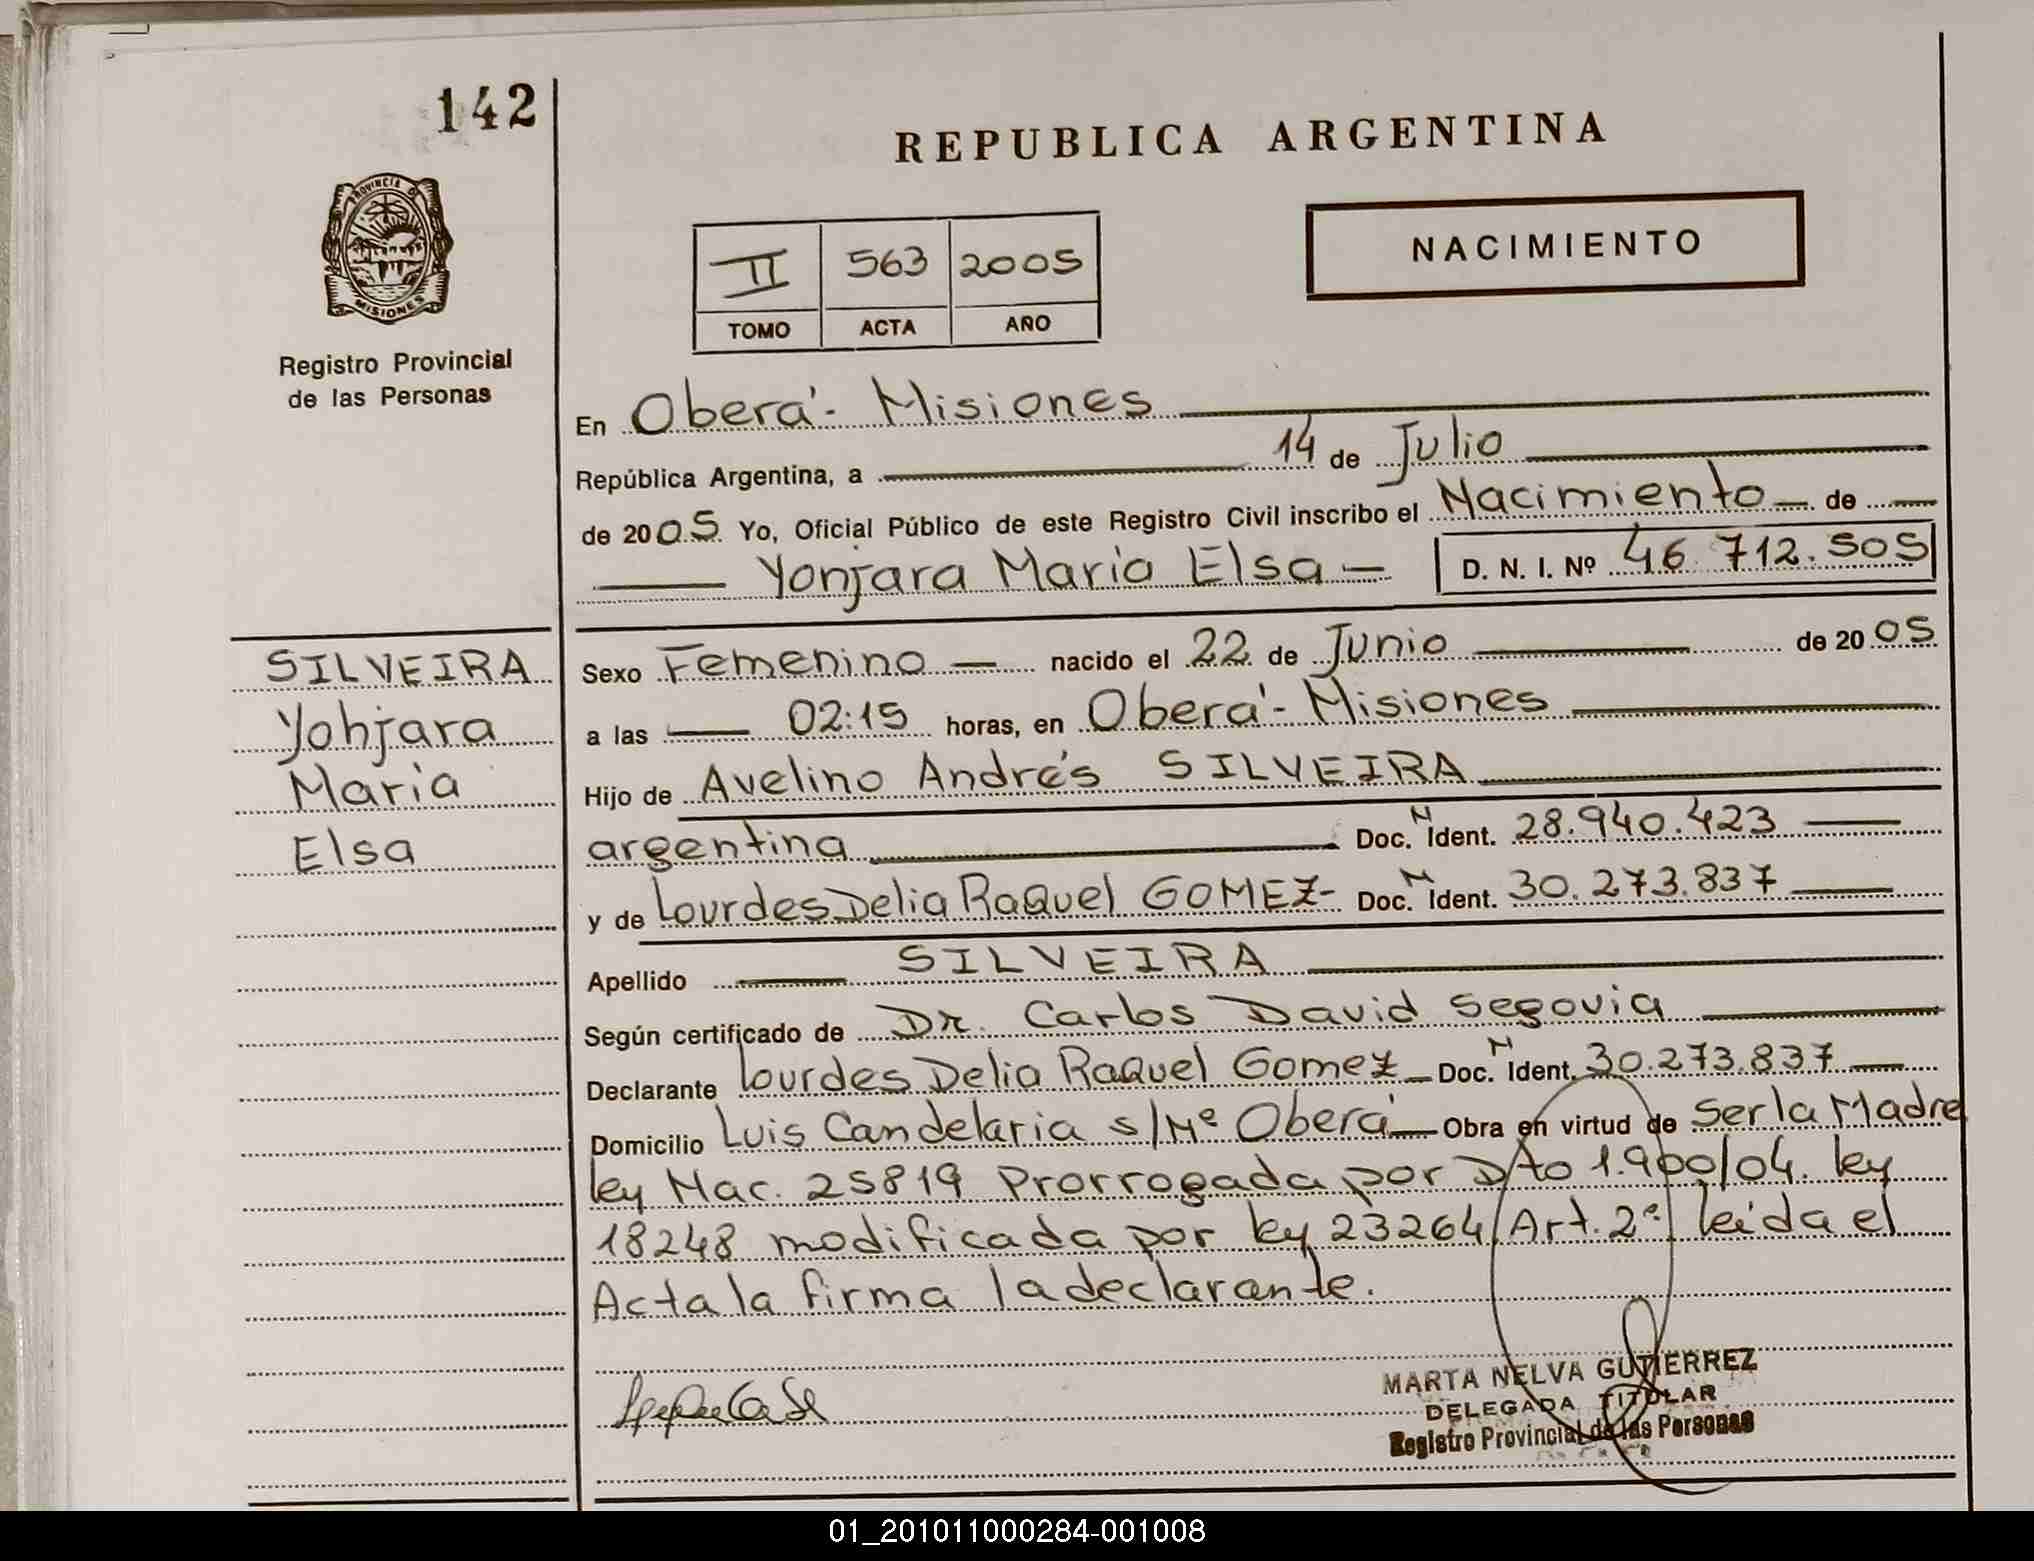 142
REPUBLICA ARGENTINA
PROVINCIA DE
MISIONES
NACIMIENTO
II 563 2005
TOMO ACTA AÑO
Registro Provincial
de las Personas
En Oberá - Misiones
República Argentina, a 14 de Julio
de 2005 Yo, Oficial Público de este Registro Civil inscribo el Nacimiento de
Yonjara Maria Elsa D. N. I. Nº 46.712.505
SILVEIRA
Yohjara
Maria
Elsa
Sexo Femenino nacido el 22 de Junio de 2005
a las 02:15 horas, en Oberá - Misiones
Hijo de Avelino Andrés SILVEIRA
argentina Doc. N Ident. 28.940.423
y de Lourdes Delia Raquel GOMEZ - Doc. N Ident. 30.273.837
Apellido SILVEIRA
Según certificado de Dr. Carlos David Segovia
Declarante Lourdes Delia Raquel Gomez Doc. N Ident. 30.273.837
Domicilio Luis Candelaria s/Nº Oberá Obra en virtud de Ser la Madre
ley Nac. 25819 Prorrogada por Dto 1.900/04. ley
18248 modificada por ley 23264 Art. 2º leída el
Acta la firma la declarante.
MARTA NELVA GUTIERREZ
DELEGADA TITULAR
Registro Provincial de las Personas
01_201011000284-001008